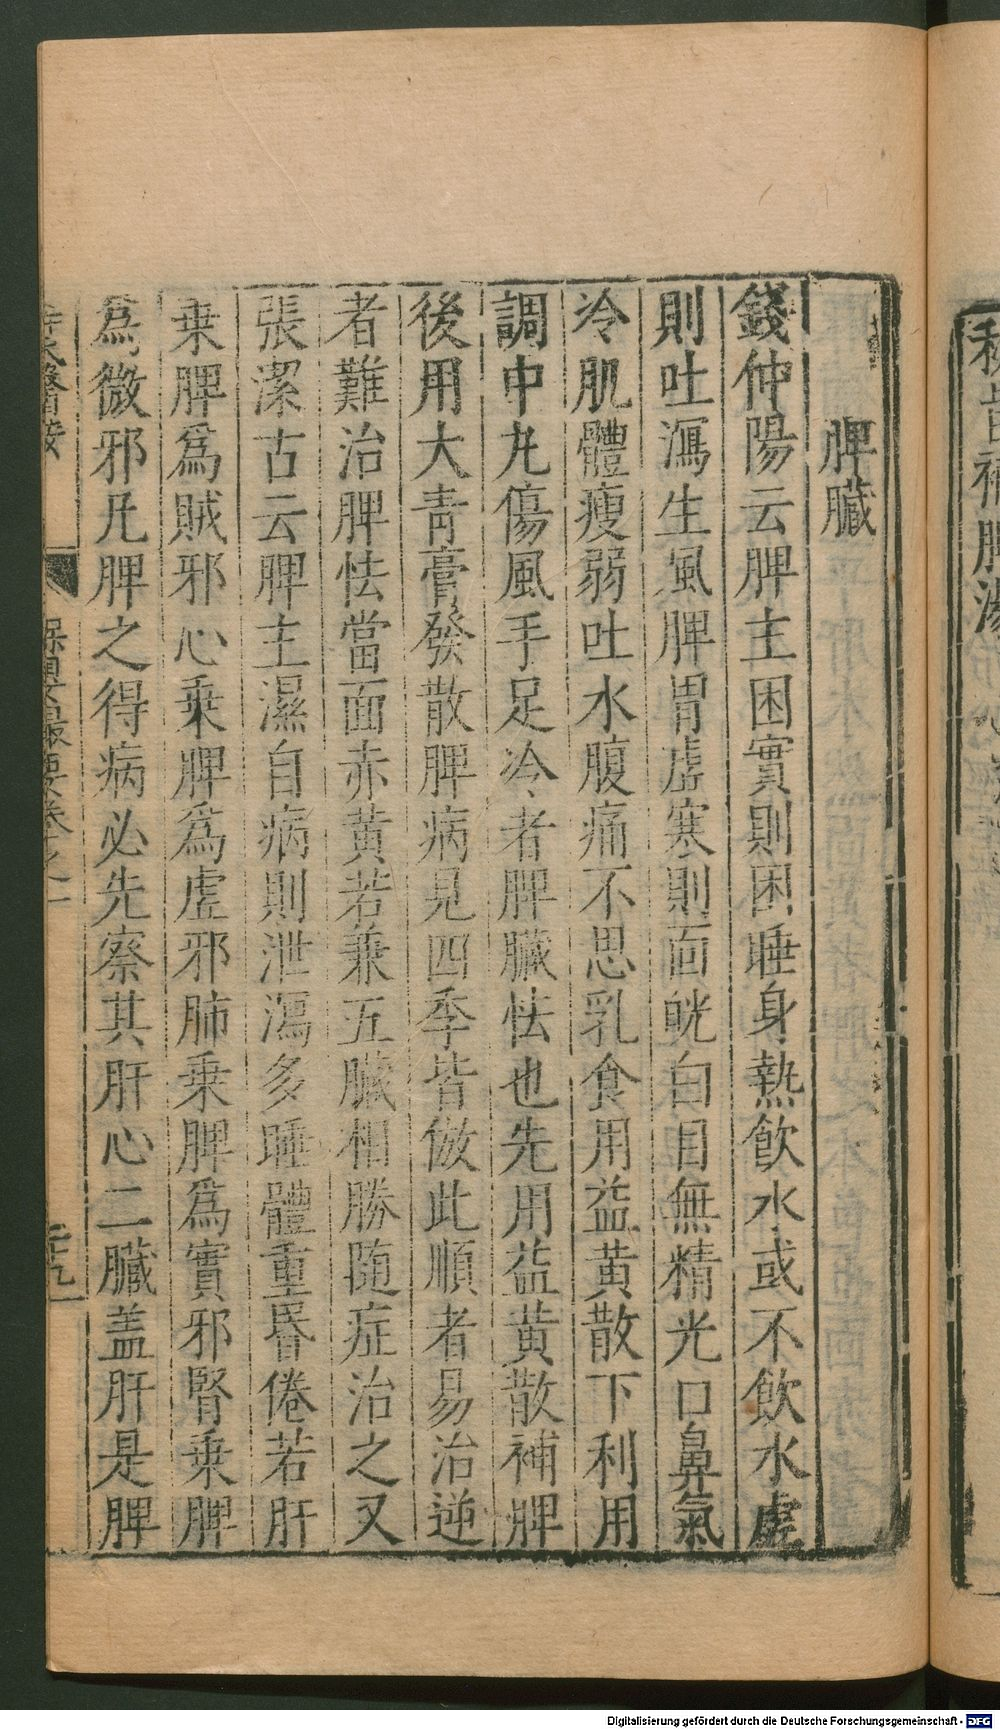 脾臟
錢仲陽云脾主困實則困睡身熱飲水或不飲水虛
則吐瀉生風脾胃虛寒則面㿠白目無精光口鼻氣
冷肌體瘦弱吐水腹痛不思乳食用益黄散下利用
調中九傷風手足冷者脾臟怯也先用益黄散補脾
後用大青膏發散脾病見四季皆倣此順者易治逆
者難治脾怯當面赤黄若兼五臟相勝随症治之又
張潔古云脾主濕自病則泄瀉多睡體重昬倦若肝
乗脾爲賊邪心乗脾爲虛邪肺乗脾爲實邪腎乗脾
爲微邪凡脾之得病必先察其肝心二臟盖肝是脾
Digitalisierung gefördert durch die Deutsche Forschungsgemeinschaft - DFG